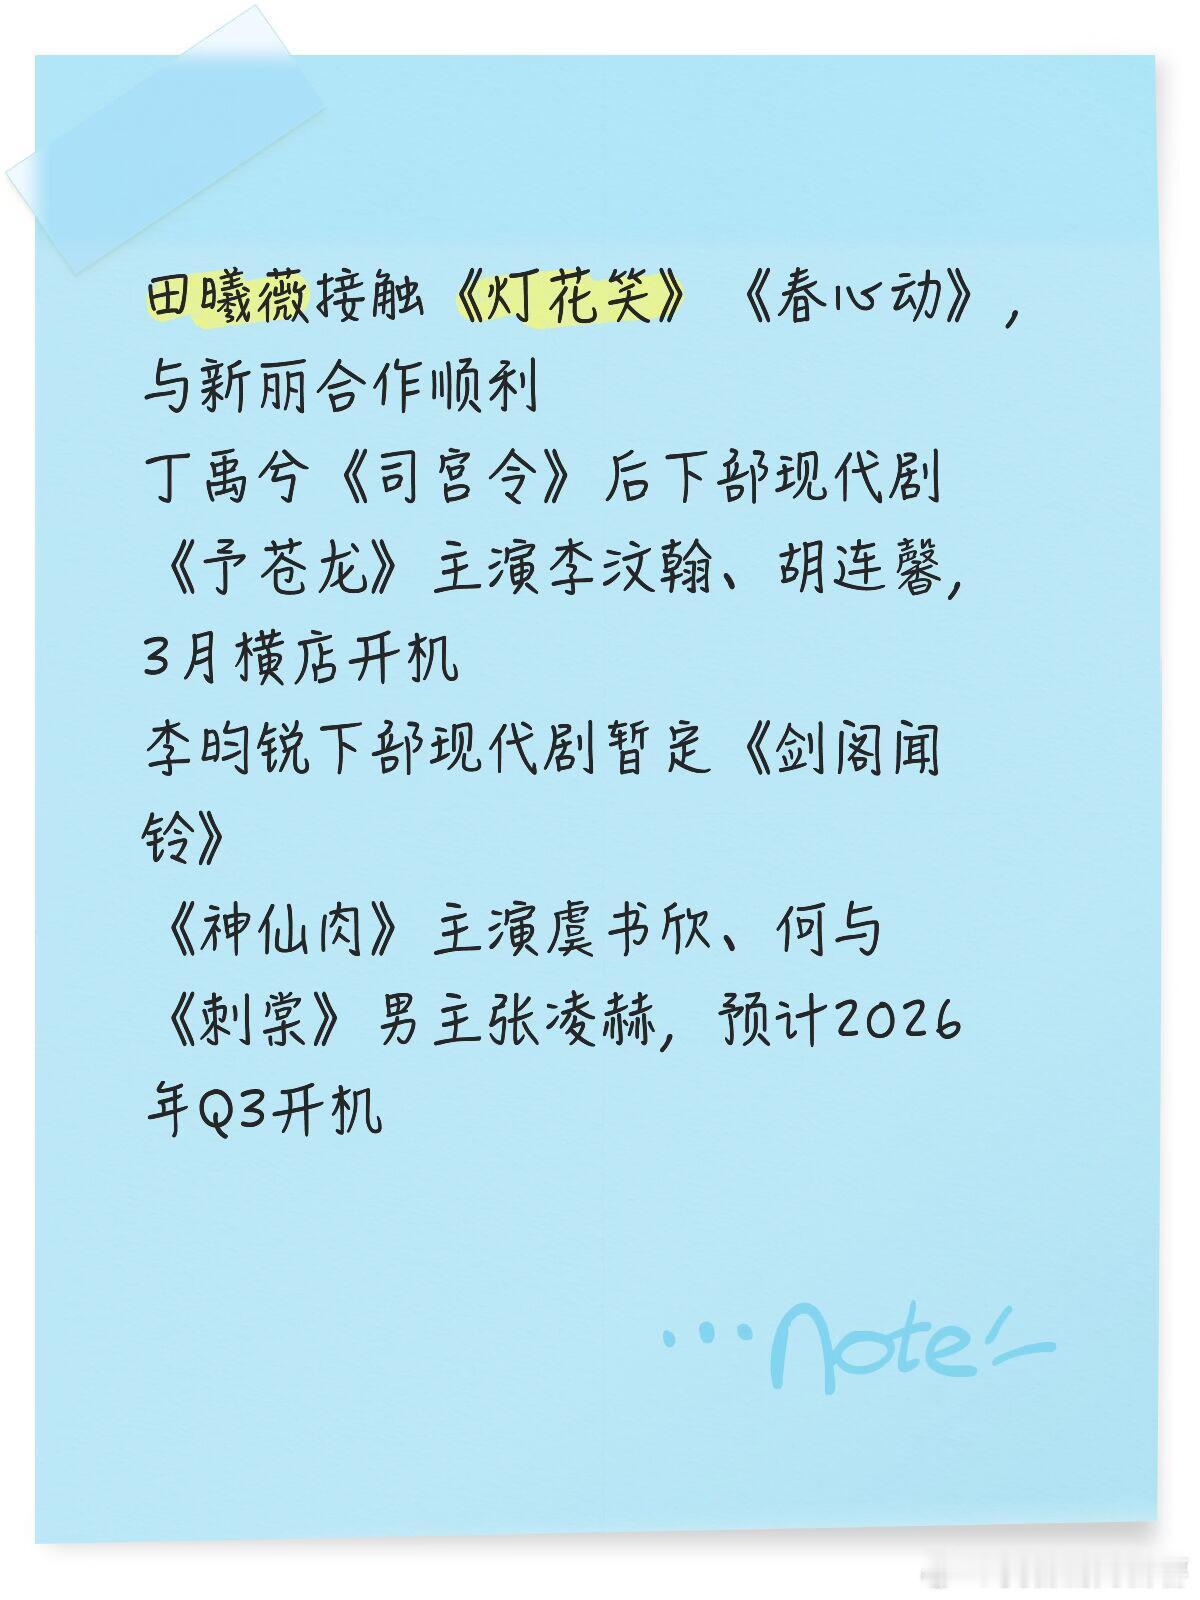 田曦薇接触《灯花笑》《春心动》，
与新丽合作顺利
丁禹兮《司宫令》后下部现代剧
《予苍龙》主演李汶翰、胡连馨，
3月横店开机
李昀锐下部现代剧暂定《剑阁闻
铃》
《神仙肉》主演虞书欣、何与
《刺棠》男主张凌赫，预计2026
年Q3开机
...note